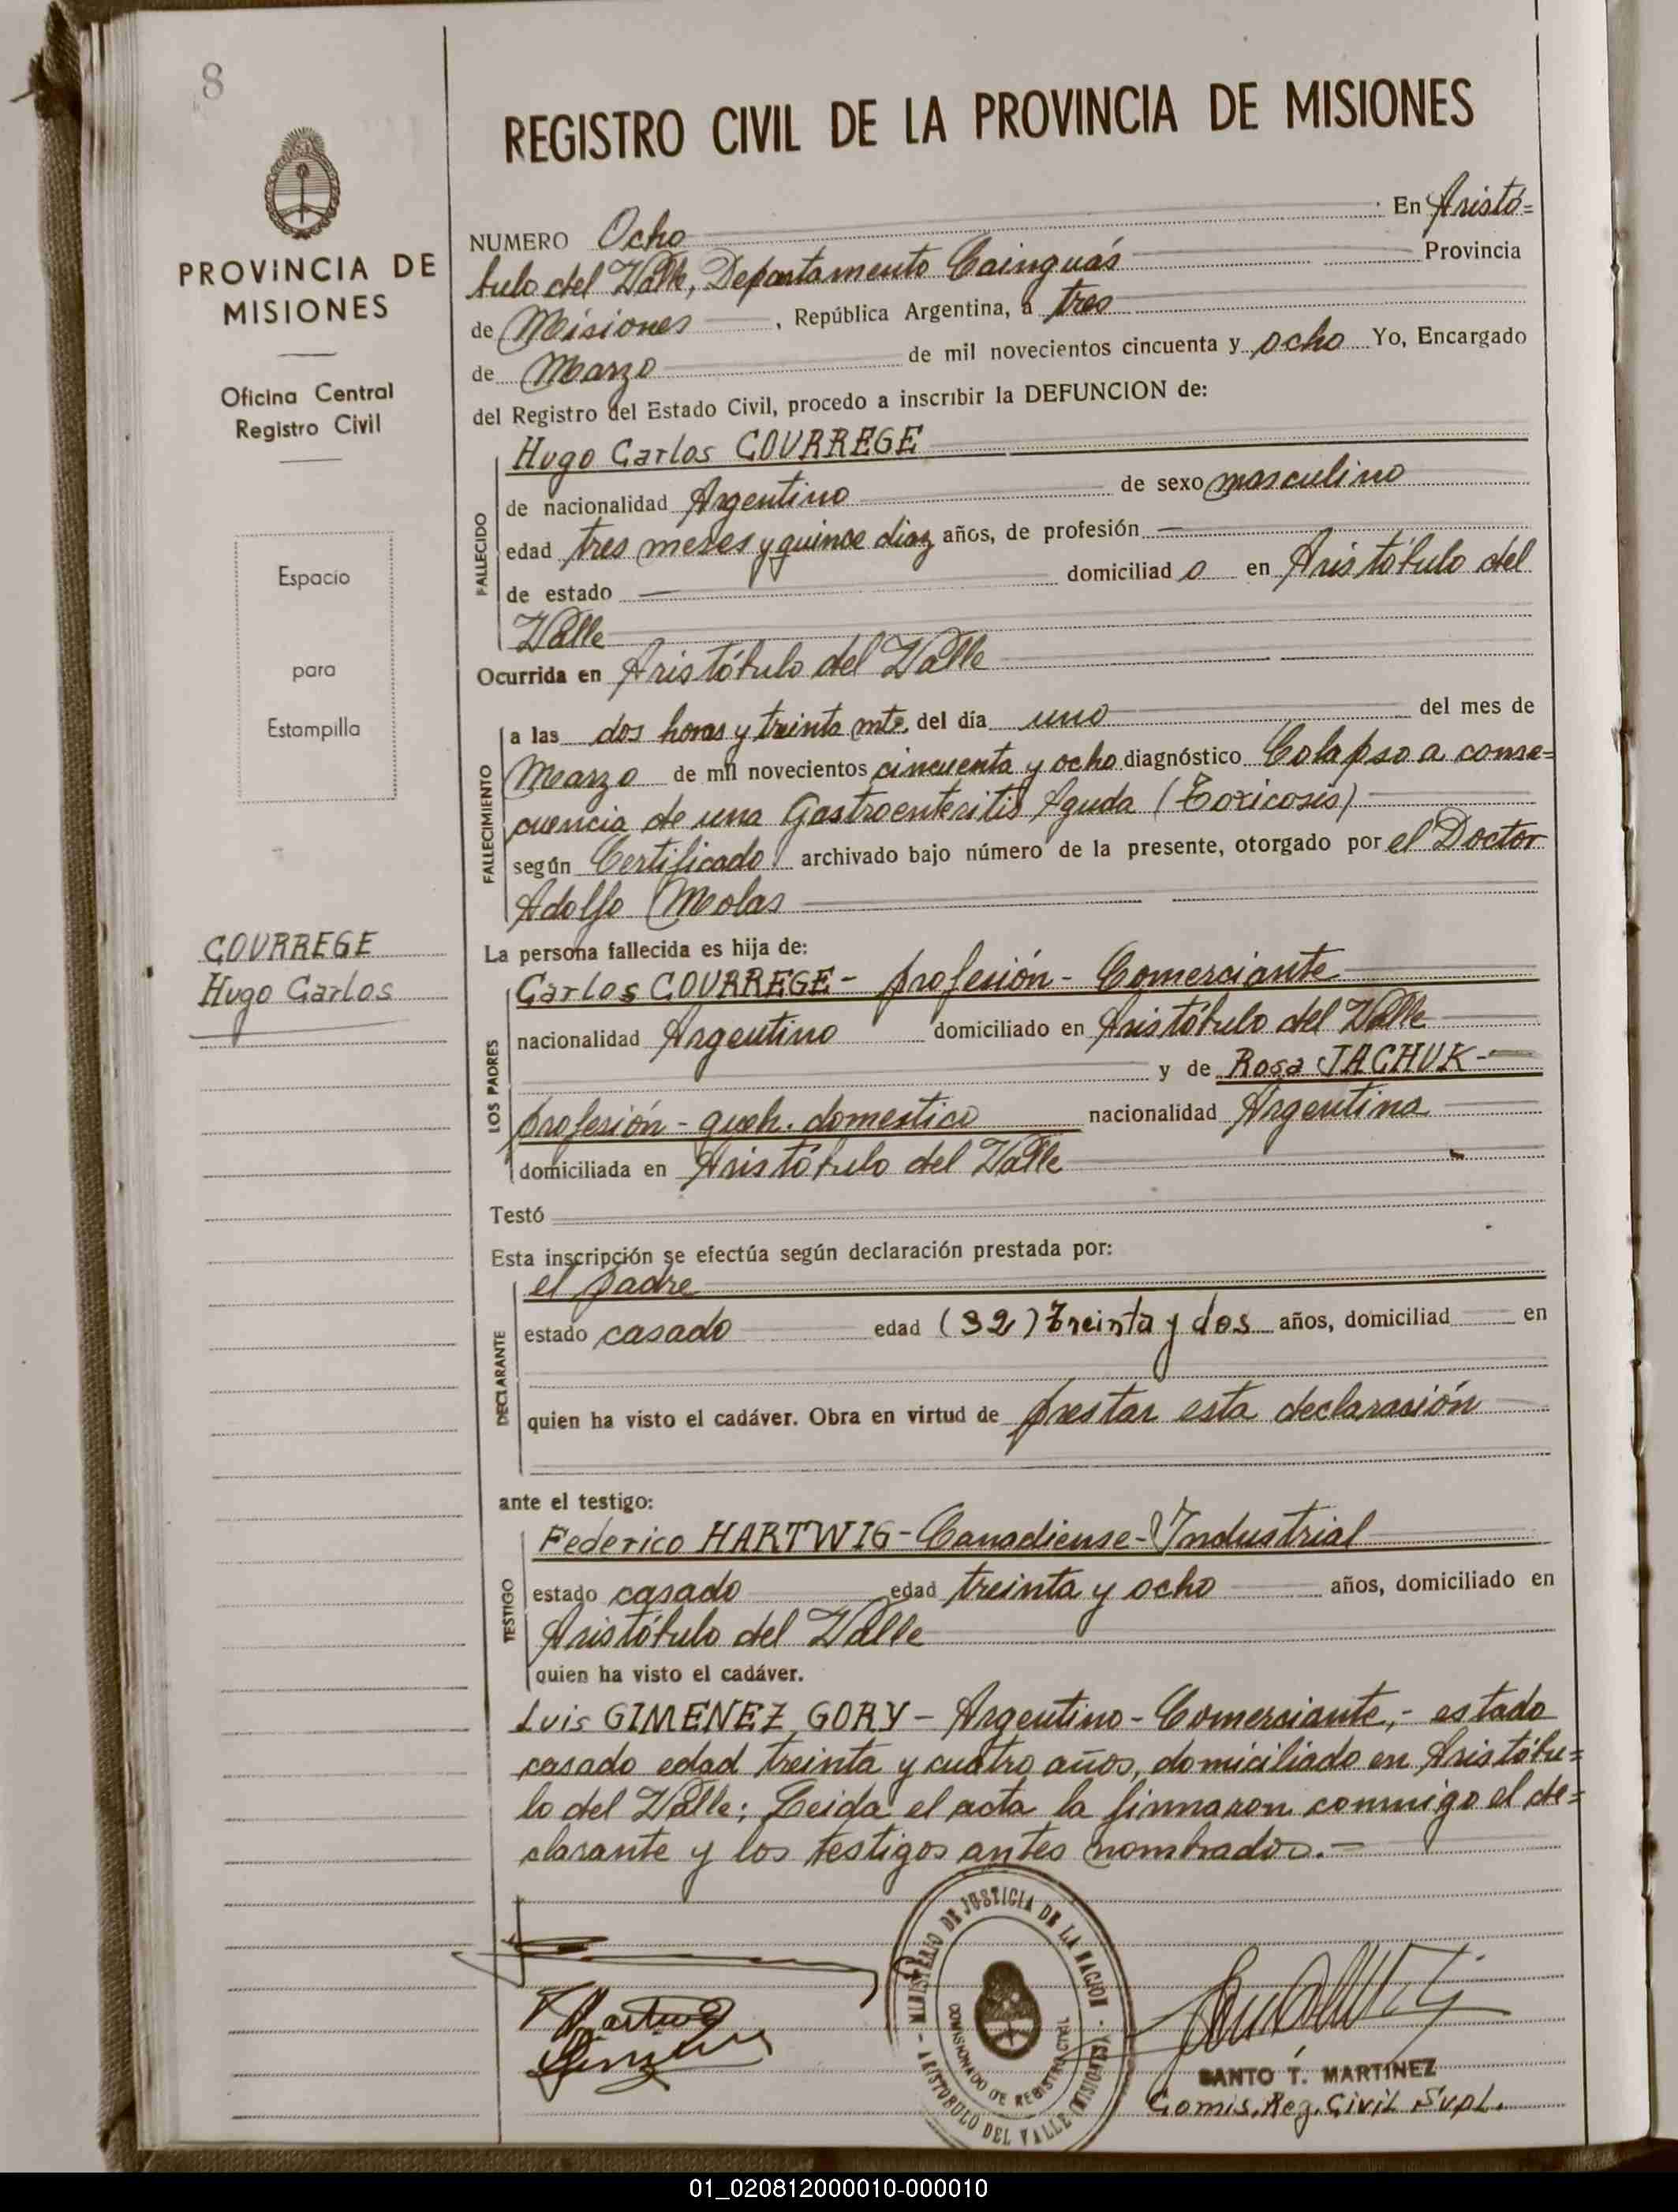 8
REGISTRO CIVIL DE LA PROVINCIA DE MISIONES
PROVINCIA DE
MISIONES
Oficina Central
Registro Civil
Espacio
para
Estampilla
COURREGE
Hugo Carlos
NUMERO Ocho En Aristó=
bulo del Valle, Departamento Cainguás Provincia
de Misiones, República Argentina, a tres
de Marzo de mil novecientos cincuenta y ocho Yo, Encargado
del Registro del Estado Civil, procedo a inscribir la DEFUNCION de:
FALLECIDO
Hugo Carlos COURREGE
de nacionalidad Argentino de sexo masculino
edad tres meses y quince diaz años, de profesión —
de estado — domiciliado en Aristóbulo del
Valle
Ocurrida en Aristóbulo del Valle
FALLECIMIENTO
a las dos horas y treinta mts. del día uno del mes de
Marzo de mil novecientos cincuenta y ocho diagnóstico Colapso a conse=
cuencia de una Gastroenteritis Aguda (Toxicosis)
según Certificado archivado bajo número de la presente, otorgado por el Doctor
Adolfo Meolas
La persona fallecida es hija de:
LOS PADRES
Carlos COURREGE - profesión - Comerciante
nacionalidad Argentino domiciliado en Aristóbulo del Valle
y de Rosa JACHUK -
profesión - queh. domestico nacionalidad Argentina
domiciliada en Aristóbulo del Valle
Testó
Esta inscripción se efectúa según declaración prestada por:
DECLARANTE
el padre
estado casado edad (32) Treinta y dos años, domiciliad en
quien ha visto el cadáver. Obra en virtud de prestar esta declaración
ante el testigo:
TESTIGO
Federico HARTWIG - Canadiense - Industrial
estado casado edad treinta y ocho años, domiciliado en
Aristóbulo del Valle
quien ha visto el cadáver.
Luis GIMENEZ GORY - Argentino - Comerciante,- estado
casado edad treinta y cuatro años, domiciliado en Aristóbu=
lo del Valle; Leida el acta la firmaron conmigo el de=
clarante y los testigos antes nombrados.-
MINISTERIO DE JUSTICIA DE LA NACION
COMISIONADO DE REGISTRO CIVIL
ARISTOBULO DEL VALLE (MISIONES)
Hartwig
SANTO T. MARTINEZ
Comis. Reg. Civil Supl.
01_020812000010-000010